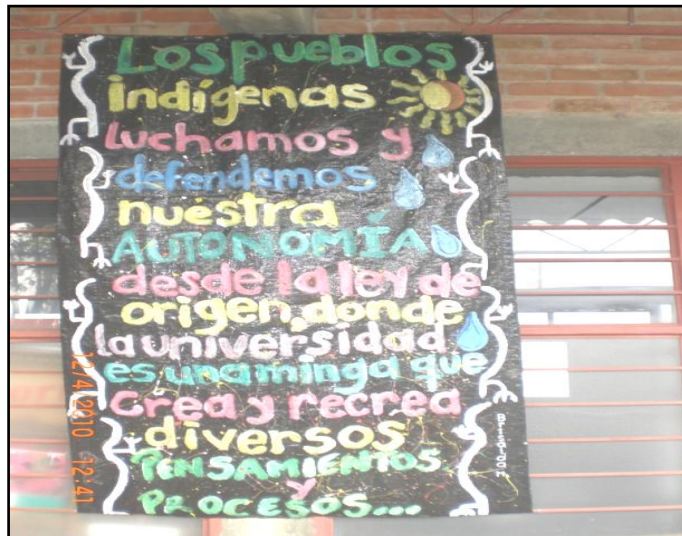 Los pueblos
indígenas
luchamos y
defendemos
nuestra
AUTONOMÍA
desde la ley de
origen, donde
la universidad
es una minga que
crea y recrea
diversos
PENSAMIENTOS
y
PROCESOS...
12/4/2010 12:41